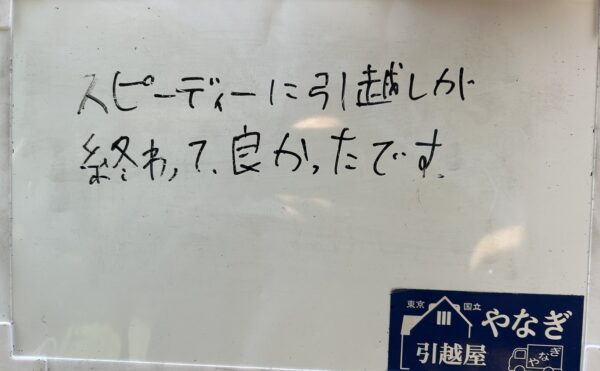 スピーディーに引越しが
終わって、良かったです。
東京 国立
やなぎ
引越屋
やなぎ